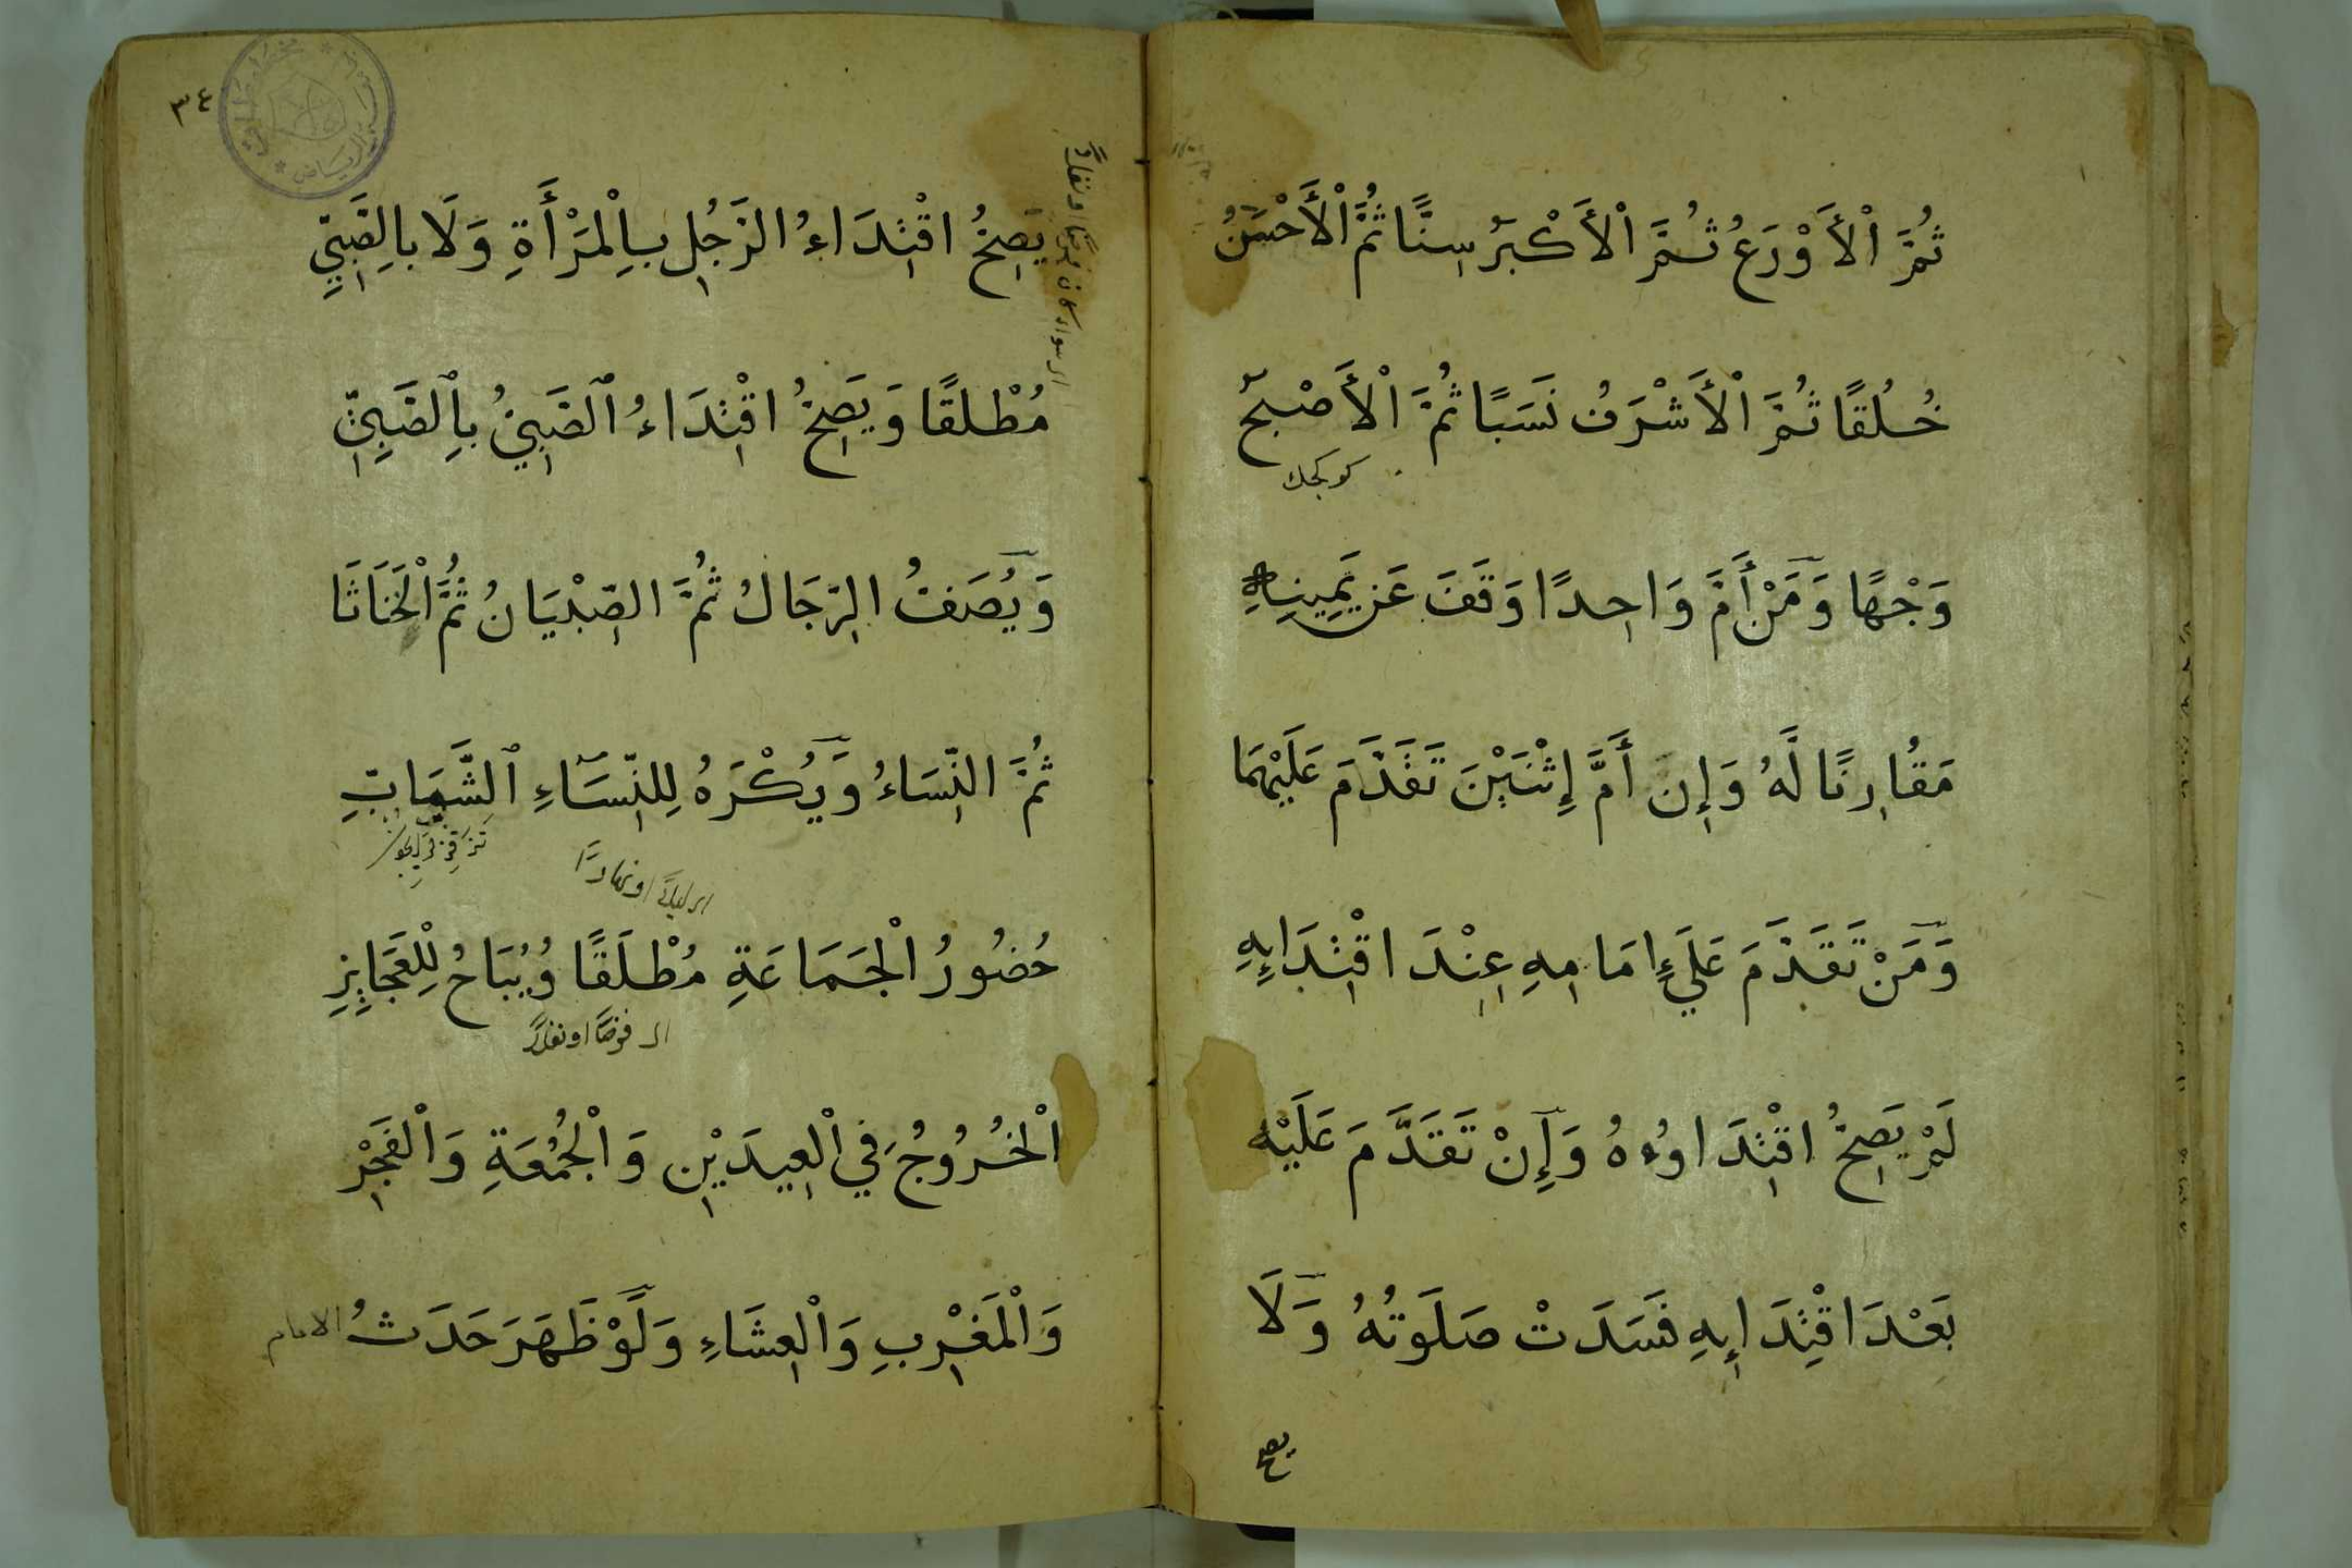 ثُمَّ اْلأَوْرَعُ ثُمَّ اْلأَكْبَرُ سِنًّا ثُمَّ اْلأَحْسَنُ
خُلُقًا ثُمَّ اْلأَشْرَفُ نَسَبًا ثُمَّ اْلأَصْبَحُ
كوكجك
وَجْهًا وَمَنْ أَمَّ وَاحِدًا وَقَفَ عَنْ يَمِينِهِ
مُقَارِنًا لَهُ وَإِن أَمَّ إِثْنَيْنِ تَقَدَّمَ عَلَيْهِمَا
وَمَنْ تَقَدَّمَ عَلَي إِمَامِهِ عِنْدَ اقْتِدَايِهِ
لَمْ يَصِحُّ اقْتِدَاوُءهُ وَإِنْ تَقَدَّمَ عَلَيْهِ
بَعْدَ اقْتِدَايِهِ فَسَدَتْ صَلَوتُهُ وَلَا
يصح
٣٤
يَصِحُّ اقْتِدَاءُ الرَّجُلِ بِاْلمَرْأَةِ وَلَا بِالصَّبِيِّ
اى سواء كان فرضًا او نفلاً
مُطْلقًا وَيَصِحُّ اقْتِدَاءُ الصَّبِيُّ بِالصَّبِيِّ
وَيُصَفُّ الرِّجَالُ ثُمَّ الصِّبْيَانُ ثُمَّ اْلخَنَاثَا
ثُمَّ النِّسَاءُ وَيُكْرَهُ لِلنِّسَاءِ الشَّابَّاتِ
اى ليلاً او نهارًا
حُضُورُ اْلجَمَاعَةِ مُطْلَقًا وُيُبَاحُ لِلْعَجَايِزِ
اى فرضًا او نفلاً
اْلخُرُوجُ فِي اْلعِيدَيْنِ وَاْلجُمُعَةِ وَاْلفَجْرِ
وَاْلمَغْرِبِ وَاْلعِشَاءِ وَلَوْ ظَهَرَ حَدَثُ الامام